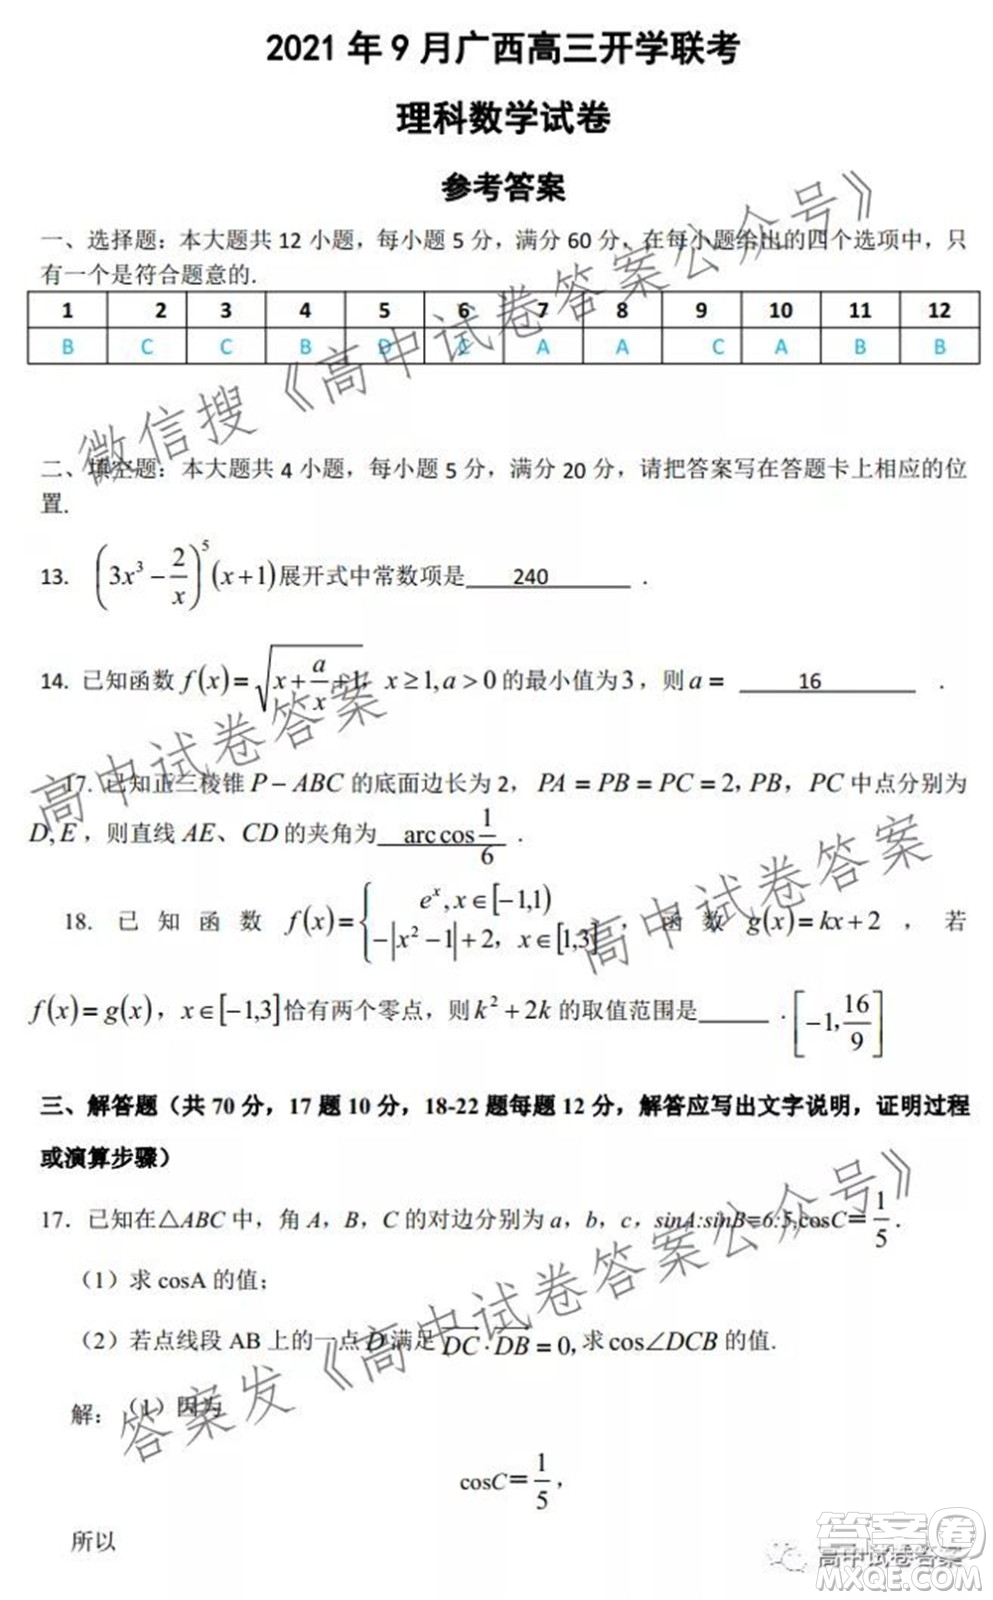 2021 年 9 月广西高三开学联考
理科数学试卷
参考答案
一、选择题：本大题共 12 小题，每小题 5 分，满分 60 分，在每小题给出的四个选项中，只
有一个是符合题意的.
1 2 3 4 5 6 7 8 9 10 11 12
B C C B D C A A C A B B
二、填空题：本大题共 4 小题，每小题 5 分，满分 20 分，请把答案写在答题卡上相应的位
置.
13. (3x³ − 2/x)⁵(x+1)展开式中常数项是 240 .
14. 已知函数 f(x)=√(x+a/x+1), x≥1,a>0的最小值为3，则a= 16 .
17. 已知正三棱锥 P−ABC 的底面边长为 2，PA=PB=PC=2,PB，PC 中点分别为
D,E，则直线 AE、CD的夹角为 arccos 1/6 .
18. 已知函数 f(x)={ eˣ,x∈[−1,1) −|x²−1|+2，x∈[1,3] ，函数 g(x)=kx+2，若
f(x)=g(x)，x∈[−1,3]恰有两个零点，则k²+2k的取值范围是 . [−1,16/9]
三、解答题（共 70 分，17 题 10 分，18-22 题每题 12 分，解答应写出文字说明，证明过程
或演算步骤）
17．已知在△ABC 中，角 A，B，C 的对边分别为 a，b，c，sinA:sinB=6:5,cosC=1/5.
（1）求 cosA 的值；
（2）若点线段 AB 上的一点 D 满足 DC·DB=0，求 cos∠DCB 的值.
解：（1）因为
cosC=1/5，
所以
微信搜《高中试卷答案公众号》
高中试卷答案
高中试卷答案
答案发《高中试卷答案公众号》
高中试卷答案
答案卷
MXQE.COM